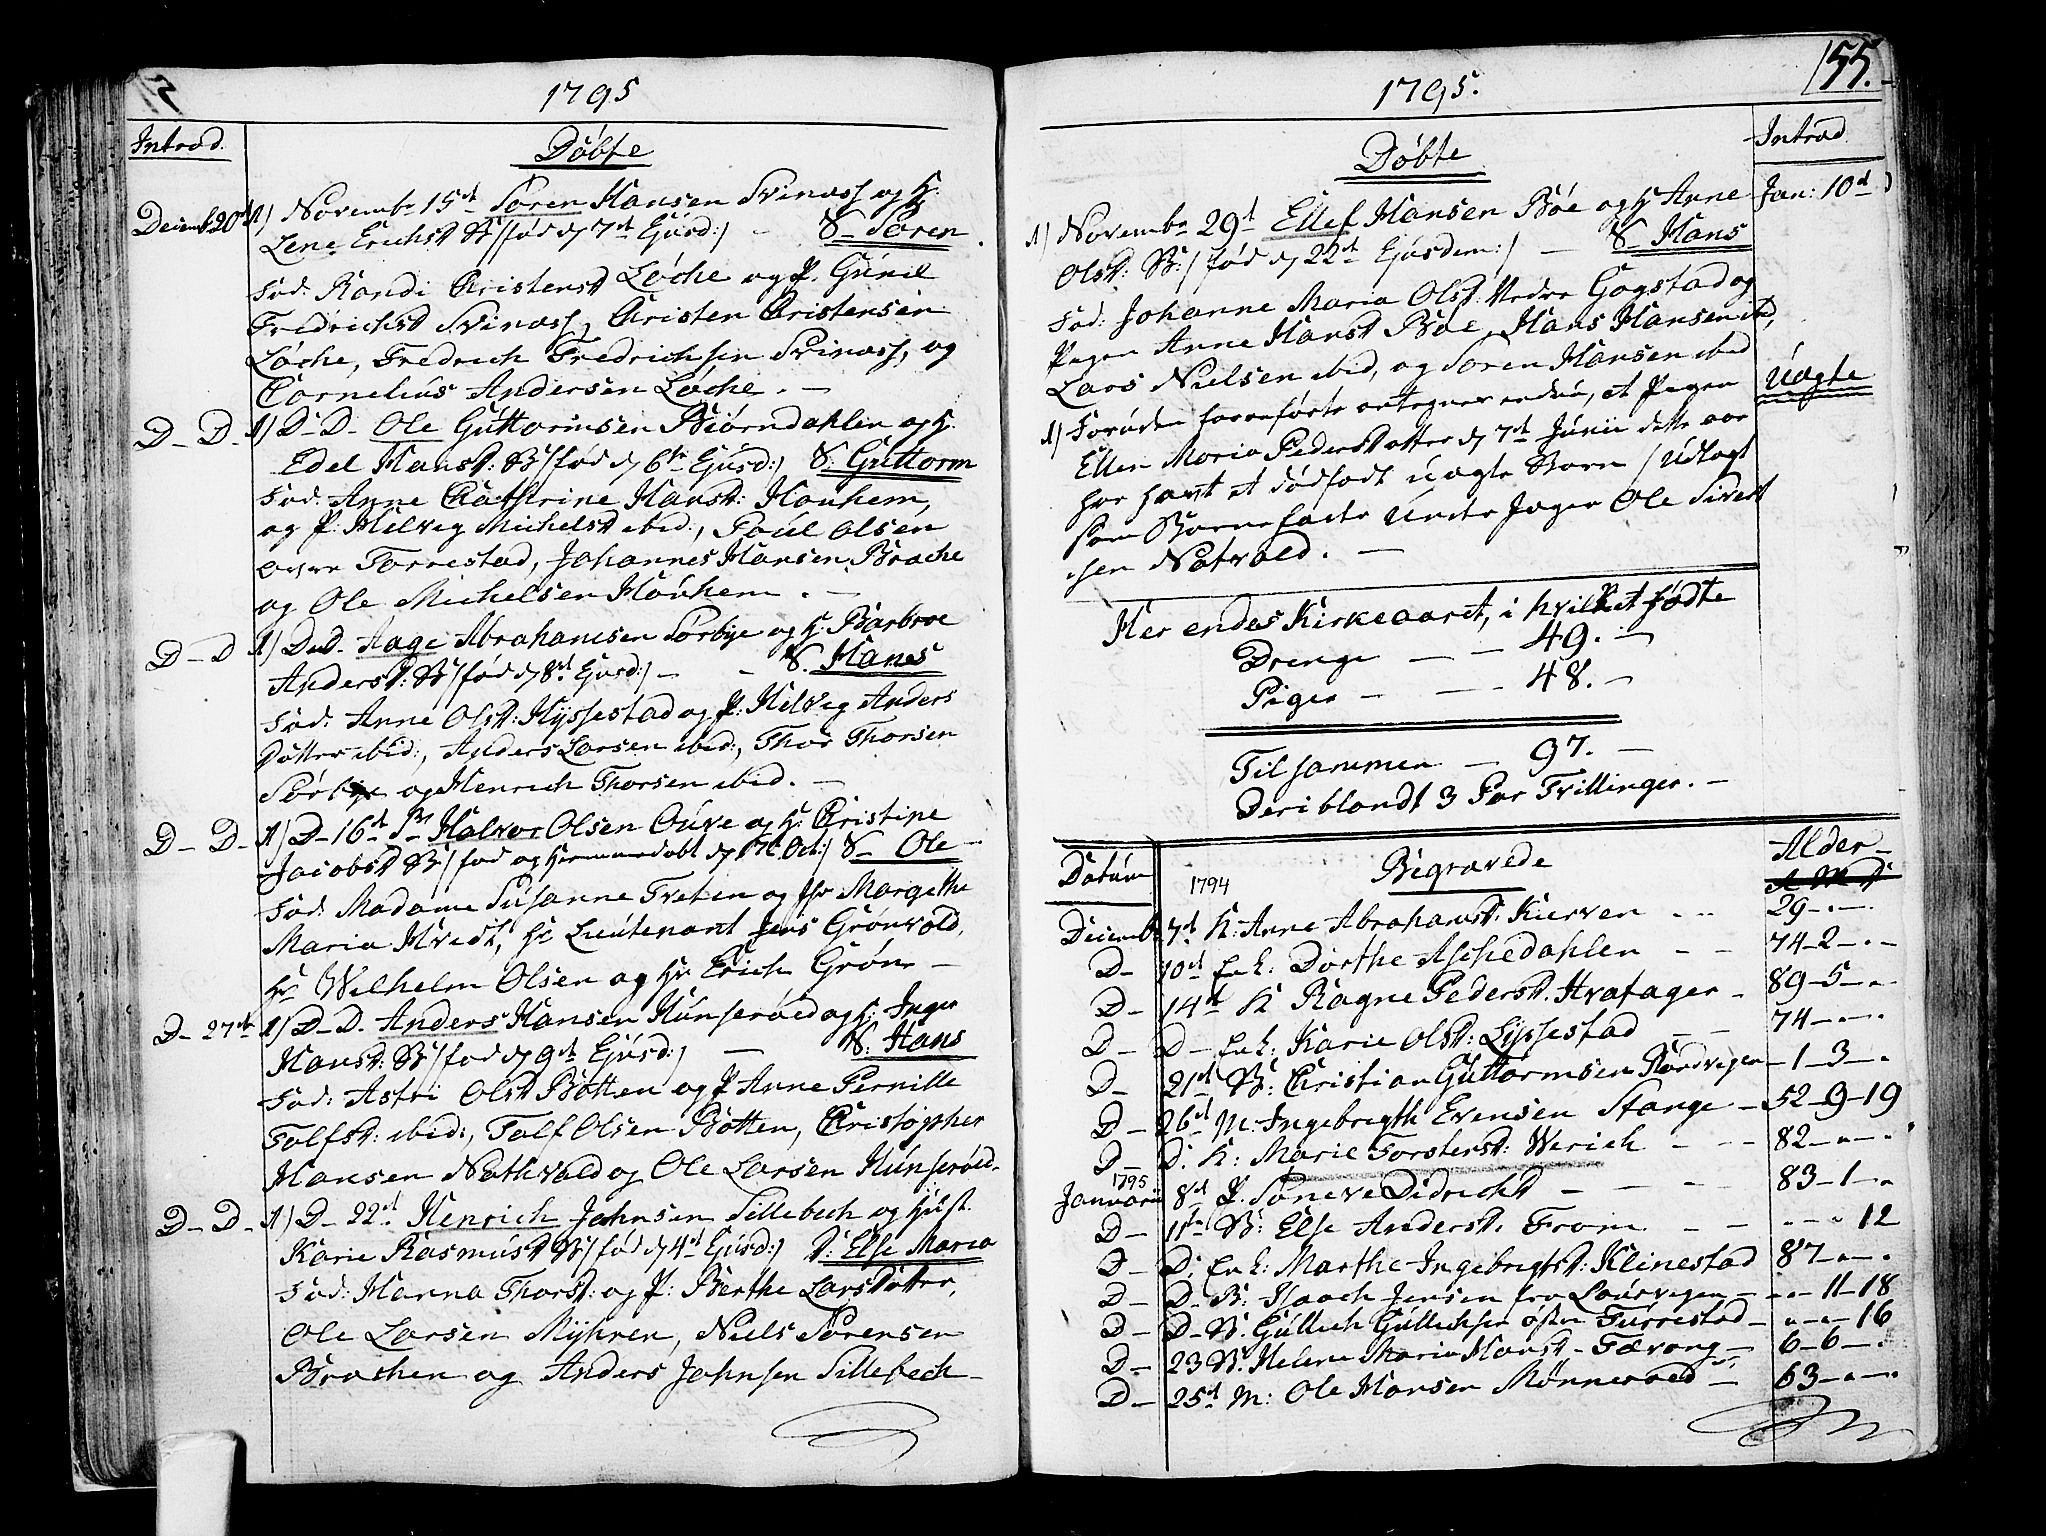 1795
Introd.
Döbte
Decemb 20d
1) Novembr 15d Sören Hansen Svinæss og H:
Lene Erichsd B/ fød d 7d Ejusd:) - S- Sören
Fad: Randi Christensd Löche og P. Gunil
Fredrichsd Svinæss, Christen Christensen
Löche, Fredrich Fredrichsen Svinæss, og
Cornelius Andersen Löche. -
D- D- 1) D- D- Ole Guttormsen Biörndahlen og H.
Edel Hansd: B/ fød d 6te Ejusd:) S. Guttorm
Fad: Anne Cathrine Hansd: Houhem,
og P. Helvig Michelsd ibid:, Poul Olsen
Torrestad, Johannes Hansen Brache
og Ole Michelsen Houhem. -
D- D 1) D- D- Aage Abrahamsen Sörbye og H: Barbroe
Andersd: B/ fød d 8d Ejusd:) - - S. Hanes
Fad: Anne Olsd: Hyssestad og P: Helvig Anders
Datter ibid:, Anders Larsen ibid:, Thor Thorsen
Sörbye og Henrich Thorsen ibid. -
D- D- 1) D- 16d Halvor Olsen Gurve og H: Christine
Jacobsd B/ fød og hiemmedöbt d 17 Oct:) S- Ole -
Fad: Madame Susanne Treten og Jfr Margethe
Maria Hvidt, Hr Lieutenant Jens Grönvold,
Hr Wilhelm Olsen og Hr Erich Grön -
D- 27de 1) D- D. Anders Hansen Hunseröed og H: Inger
Hansd: B/ fød d 9d Ejusd:) - S: Hans
Fad: Astri Olsd Botten og P Anne Pernille
Tolfsd: ibid:, Tolf Olsen Botten, Christopher
Hansen Nathvald og Ole Larsen Hunseröed.
D- D- 1) D- 22d Henrich Johnsen Sillebech og Hust.
Karie Rasmusd B/ fød d 4d Ejusd:) D: Else Maria
Fad: Hanna Thorsd: og P: Berthe Larsdatter,
Ole Larsen Myhren, Niels Sörensen
Brachen og Anders Johnsen Sillebech -
155.
1795.
Döbte
Introd
1) Novembr 29d Ellef Hansen Böe og H Anne Jan: 10d
Olsd: B:/ fød d 22d Ejusdem:) - S- Hans
Fad: Johanne Maria Olsd: Nedre Gogstad og
Pigen Anne Hansd Böe, Hans Hansen ibid,
Lars Nielsen ibid, og Soren Hansen ibid
1) Foruden foranförte antegnes endnu, at Pigen Uægte
Ellen Maria Pedersdatter d 7d Junii dette aar
har havt et dödfødt uægte Barn / Udlagt
som Barnefader Unde Jæger Ole Sivert
sen Natvald. -
Her endes Kirkeaaret, i hvilket fødte
Drenge - - 49. -
Piger - - - 48. -
Tilsammen - 97. -
Deriblandt 3 Par Tvillinger. -
Datum
Begravede
Alder -
1794
Decembr 7d K: Anne Abrahamsd: Kierven .. 29-"-"
D- 10d Enk: Dorthe Aschedahlen - - 74-2-"
D- 14d K Ragne Pedersd: Hvatager - 89-5-"
D- D- Enk: Karie Olsd: Lyssestad - - 74-"-"
D- 21d B: Christian Guttormsen Nordvigen - 1-3-"
D- 26d M: Ingebregth Evensen Stange - 52-9-19
D- D. K: Marie Torstersd: Werich - - - 82-"-"
1795
Januarii 8d P. Söneve Didrichsd - - - 83-1-"
D- 11te B: Else Andersd: From - - "-"-12
D- D: Enk: Marthe Ingebregtsd: Klinestad 87-"-"
D- D- B: Isaach Jensen fra Laurvigen - "-11-18
D- D- B. Gullich Gullichsen östre Furrestad - "-"-16
D- 23 B. Helene Maria Hansd - Tærang - 6-6-"
D- 25d M: Ole Hansen Mönneroed - 63-"-"